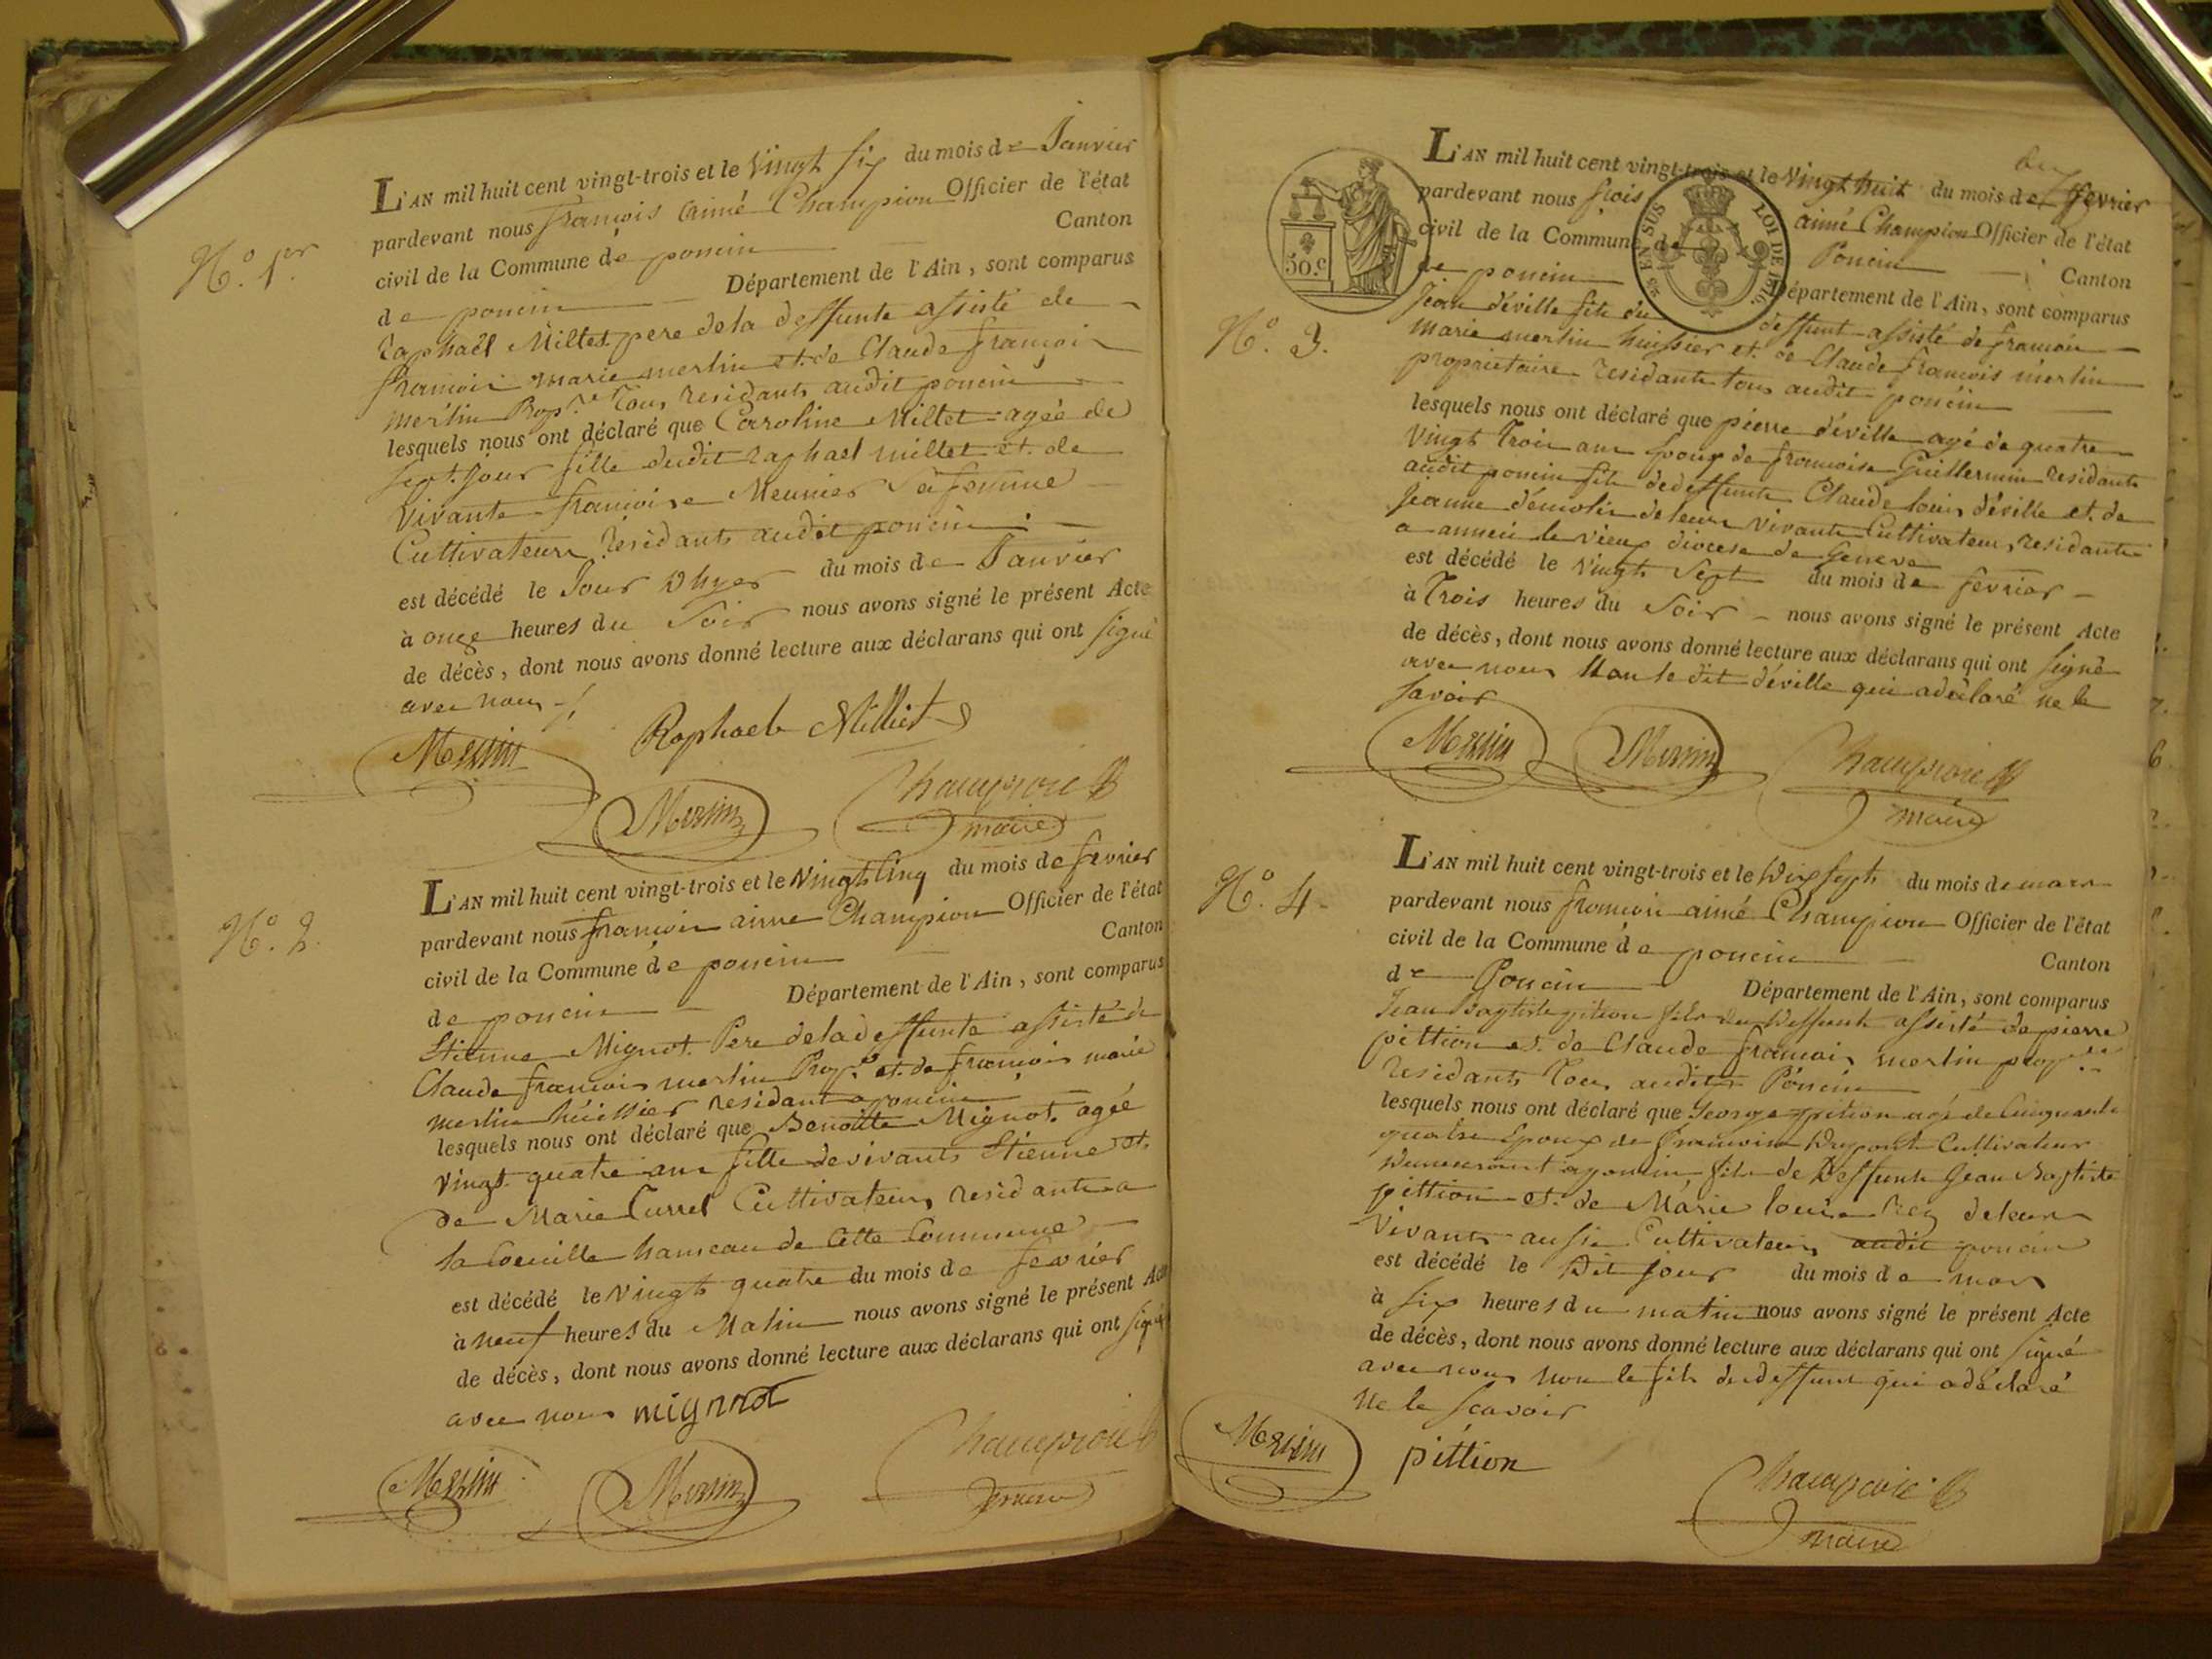 N.º 1.er
L'AN mil huit cent vingt-trois et le Vingt six du mois de Janvier
pardevant nous françois aimé Champion Officier de l'état
civil de la Commune de poncin Canton
de poncin Département de l'Ain, sont comparus
Raphaël Millet pere de la deffunte assisté de
françois marie merlin et de Claude françois
merlin Prop.re Tous residants audit poncin
lesquels nous ont déclaré que Carroline Millet agée de
sept jour fille dudit raphael millet et de
Vivante françoise Meunier sa femme
Cultivateurs residants audit poncin
est décédé le Jour d'hyer du mois de Janvier
à onze heures du Soir nous avons signé le présent Acte
de décès, dont nous avons donné lecture aux déclarans qui ont signé
avec nous
Merlin Raphaele Milliet
Merlin Champion
maire
N.º 2.
L'AN mil huit cent vingt-trois et le Vingt Cinq du mois de fevrier
pardevant nous françois aimé Champion Officier de l'état
civil de la Commune de poncin Canton
de poncin Département de l'Ain, sont comparus
Etienne Mignot Pere de la deffunte assisté de
Claude françois merlin Prop.re et de françois marie
merlin huissier residant a poncin
lesquels nous ont déclaré que Benoitte Mignot agée
vingt quatre ans fille de vivants Etienne et
de Marie Currel Cultivateurs residants a
la Coeuille hameau de Cette Commune
est décédé le Vingt quatre du mois de fevrier
à neuf heures du Matin nous avons signé le présent Acte
de décès, dont nous avons donné lecture aux déclarans qui ont signé
avec nous mignnot
Merlin Merlin Champion
maire
N.º 3.
50.C
EN SUS
LOI DE 1816.
L'AN mil huit cent vingt-trois et le Vingt huit du mois de fevrier
pardevant nous f.rois aimé Champion Officier de l'état
civil de la Commune de Poncin Canton
de poncin Département de l'Ain, sont comparus
Jean déville fils du deffunt assisté de françois
marie merlin huissier et de Claude françois merlin
proprietaire residants tous audit poncin
lesquels nous ont déclaré que pierre déville agé de quatre
Vingt Trois ans Epoux de françoise Guillermin residants
audit poncin fils de deffunts Claude louis déville et de
Jeanne démolin de leur vivants Cultivateurs residants
a anneci le vieux diocese de Geneve
est décédé le Vingt Sept du mois de fevrier
à Trois heures du Soir nous avons signé le présent Acte
de décès, dont nous avons donné lecture aux déclarans qui ont signé
avec nous Non le dit déville qui a déclaré ne le
savoir
Merlin Merlin Champion
maire
N.º 4.
L'AN mil huit cent vingt-trois et le Dix sept du mois de mars
pardevant nous françois aimé Champion Officier de l'état
civil de la Commune de poncin Canton
de Poncin Département de l'Ain, sont comparus
Jean Baptiste pition fils du Deffunt assisté de pierre
pittion et de Claude françois merlin prop.re
residants Tous audit Poncin
lesquels nous ont déclaré que George pition agé de Cinquante
quatre Epoux de françoise Dupont Cultivateur
Demeurant a poncin, fils de Deffunts Jean Baptiste
pittion et de Marie louise Rey de leur
Vivants aussi Cultivateurs audit poncin
est décédé le Dit jour du mois de mars
à six heures du matin nous avons signé le présent Acte
de décès, dont nous avons donné lecture aux déclarans qui ont signé
avec nous non le fils du deffunt qui a déclaré
ne le scavoir
Merlin pittion
Champion
maire